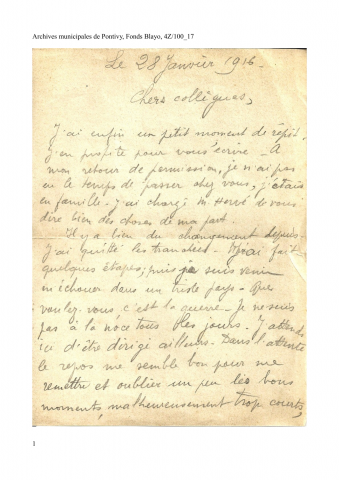 Archives municipales de Pontivy, Fonds Blayo, 4Z/100_17
Le 28 Janvier 1916.
Chers collègues,
J'ai enfin un petit moment de répit.
J'en profite pour vous écrire - A
mon retour de permission, je n'ai pas
eu le temps de passer chez vous, j'étais
en famille - J'ai chargé M Hervé de vous
dire bien des choses de ma part.
Il y a bien du changement depuis -
J'ai quitté les tranchées - j'ai fait
quelques étapes; puis je suis venu
m'échouer dans un triste pays - Que
voulez-vous, c'est la guerre - Je ne suis
pas à la noce tous les jours - J'attends
ici d'être dirigé ailleurs - Dans l'attente
le repos me semble bon pour me
remettre et oublier un peu les bons
moments, malheureusement trop courts,
1